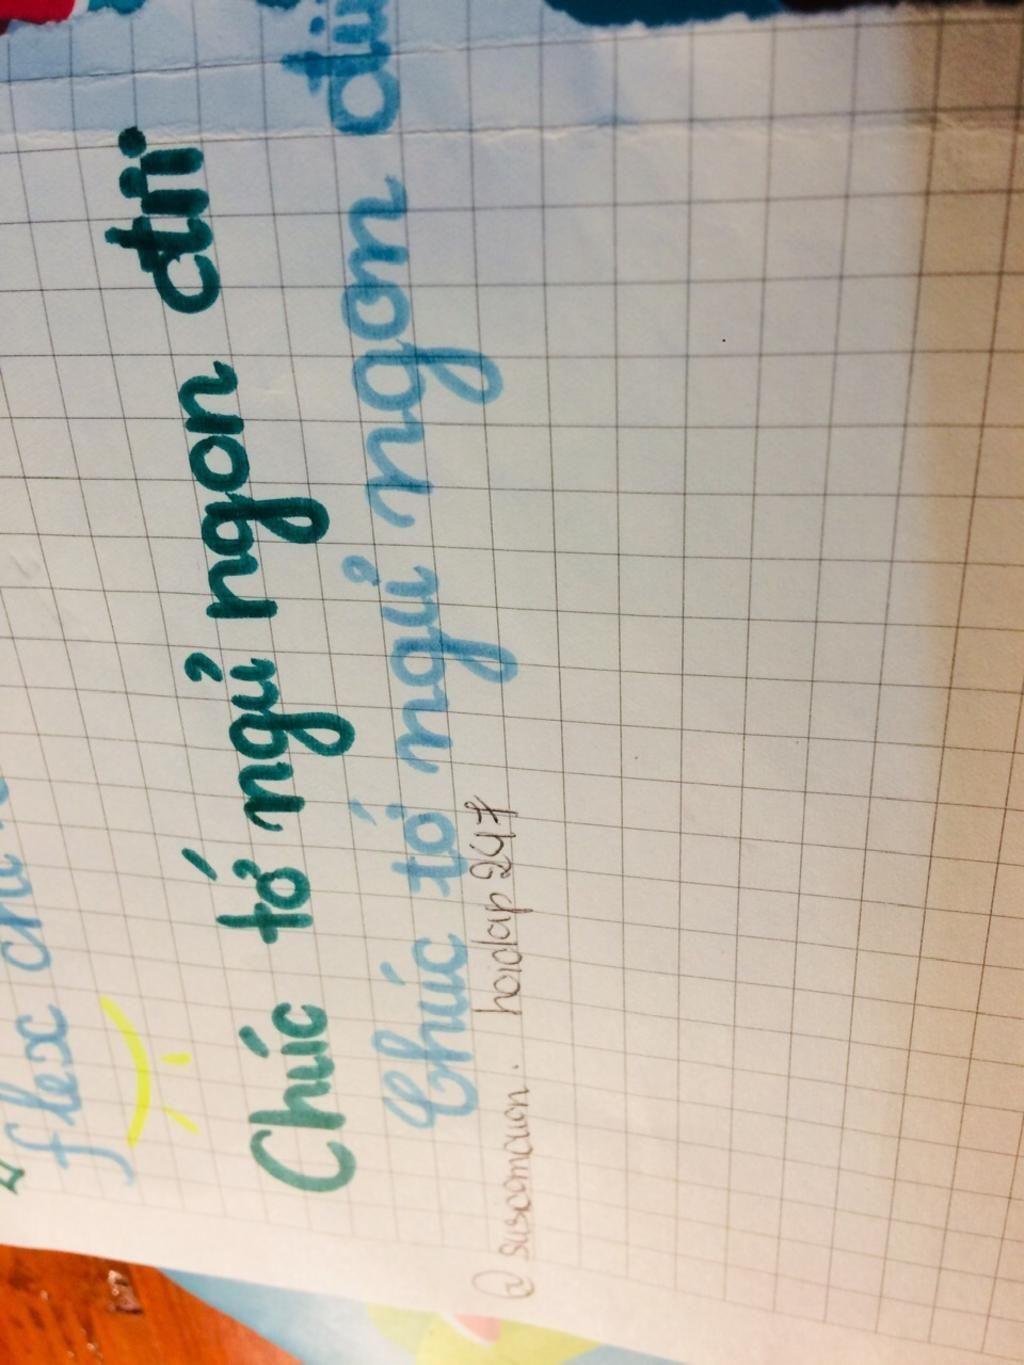 flex
Chúc tớ ngủ ngon đi
Chúc tớ ngủ ngon đi
@susamauon. hoidap247